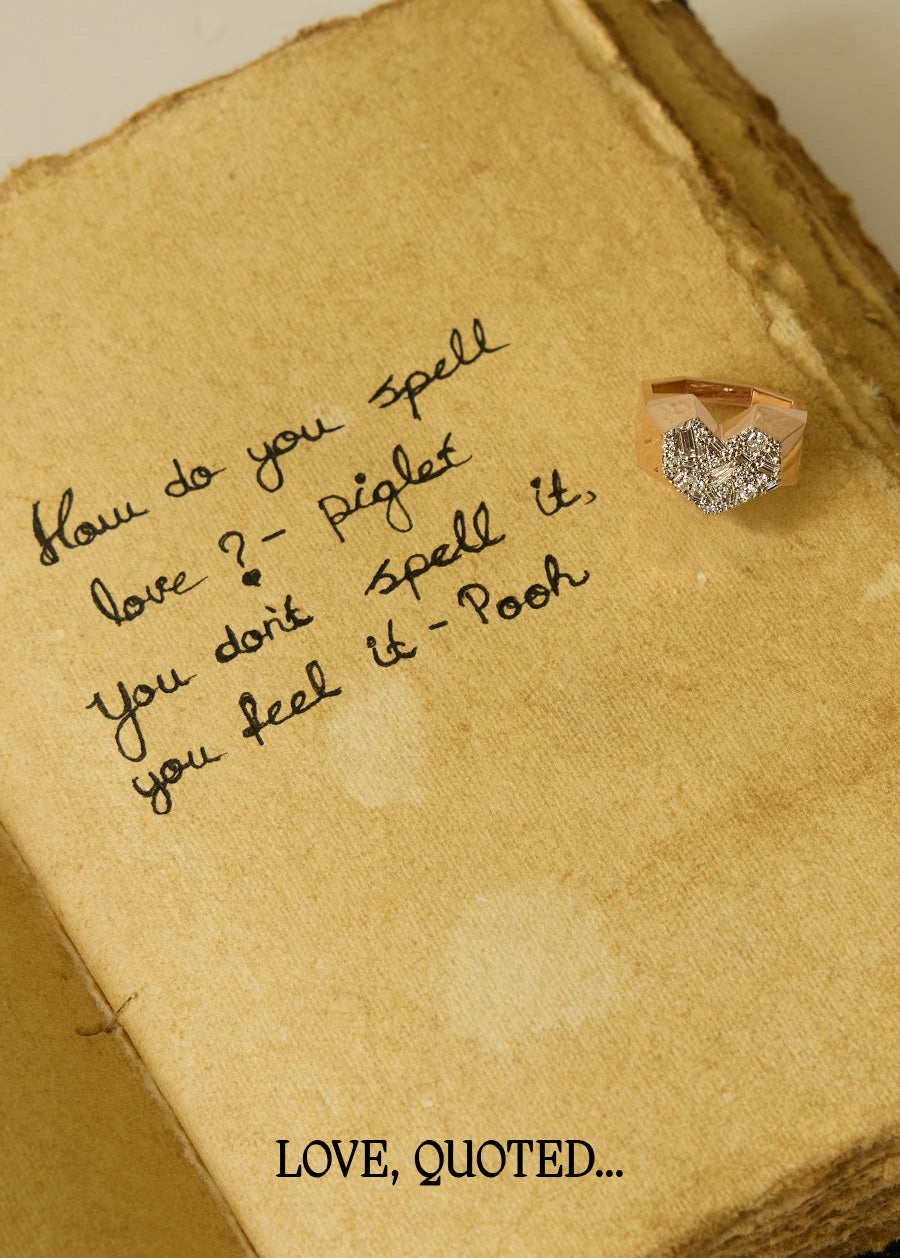 How do you spell
love ? - piglet
You don't spell it,
you feel it - Pooh
LOVE, QUOTED...